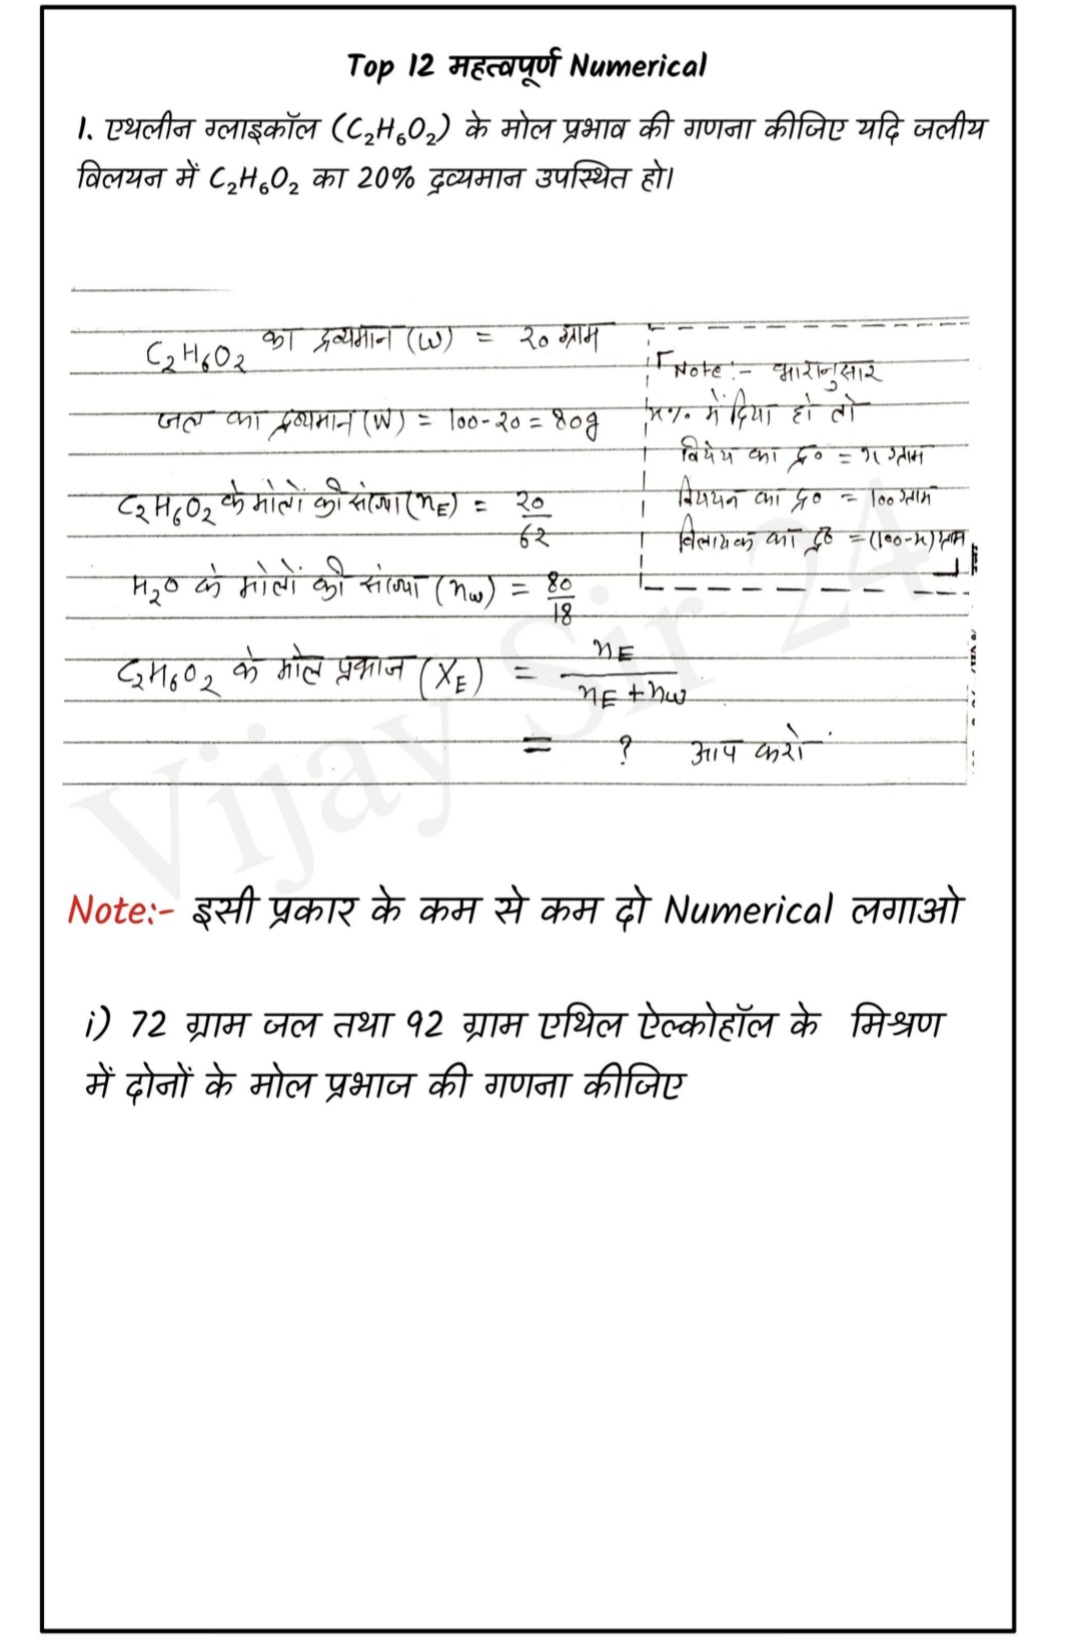 Top 12 महत्वपूर्ण Numerical
1. एथलीन ग्लाइकॉल (C₂H₆O₂) के मोल प्रभाव की गणना कीजिए यदि जलीय
विलयन में C₂H₆O₂ का 20% द्रव्यमान उपस्थित हो।
C₂H₆O₂ का द्रव्यमान (W) = 20 ग्राम
जल का द्रव्यमान (W) = 100-20 = 80g
C₂H₆O₂ के मोलों की संख्या (nE) = 20/62
H₂O के मोलों की संख्या (nw) = 80/18
C₂H₆O₂ के मोल प्रभाज (XE) = nE/nE + nw
= ? आप करो
Note:- भारानुसार
x% में दिया हो तो
विलेय का द्र० = x ग्राम
विलयन का द्र० = 100 ग्राम
विलायक का द्र० = (100-x) ग्राम
Vijay Sir 24
Note:- इसी प्रकार के कम से कम दो Numerical लगाओ
i) 72 ग्राम जल तथा 92 ग्राम एथिल ऐल्कोहॉल के मिश्रण
में दोनों के मोल प्रभाज की गणना कीजिए